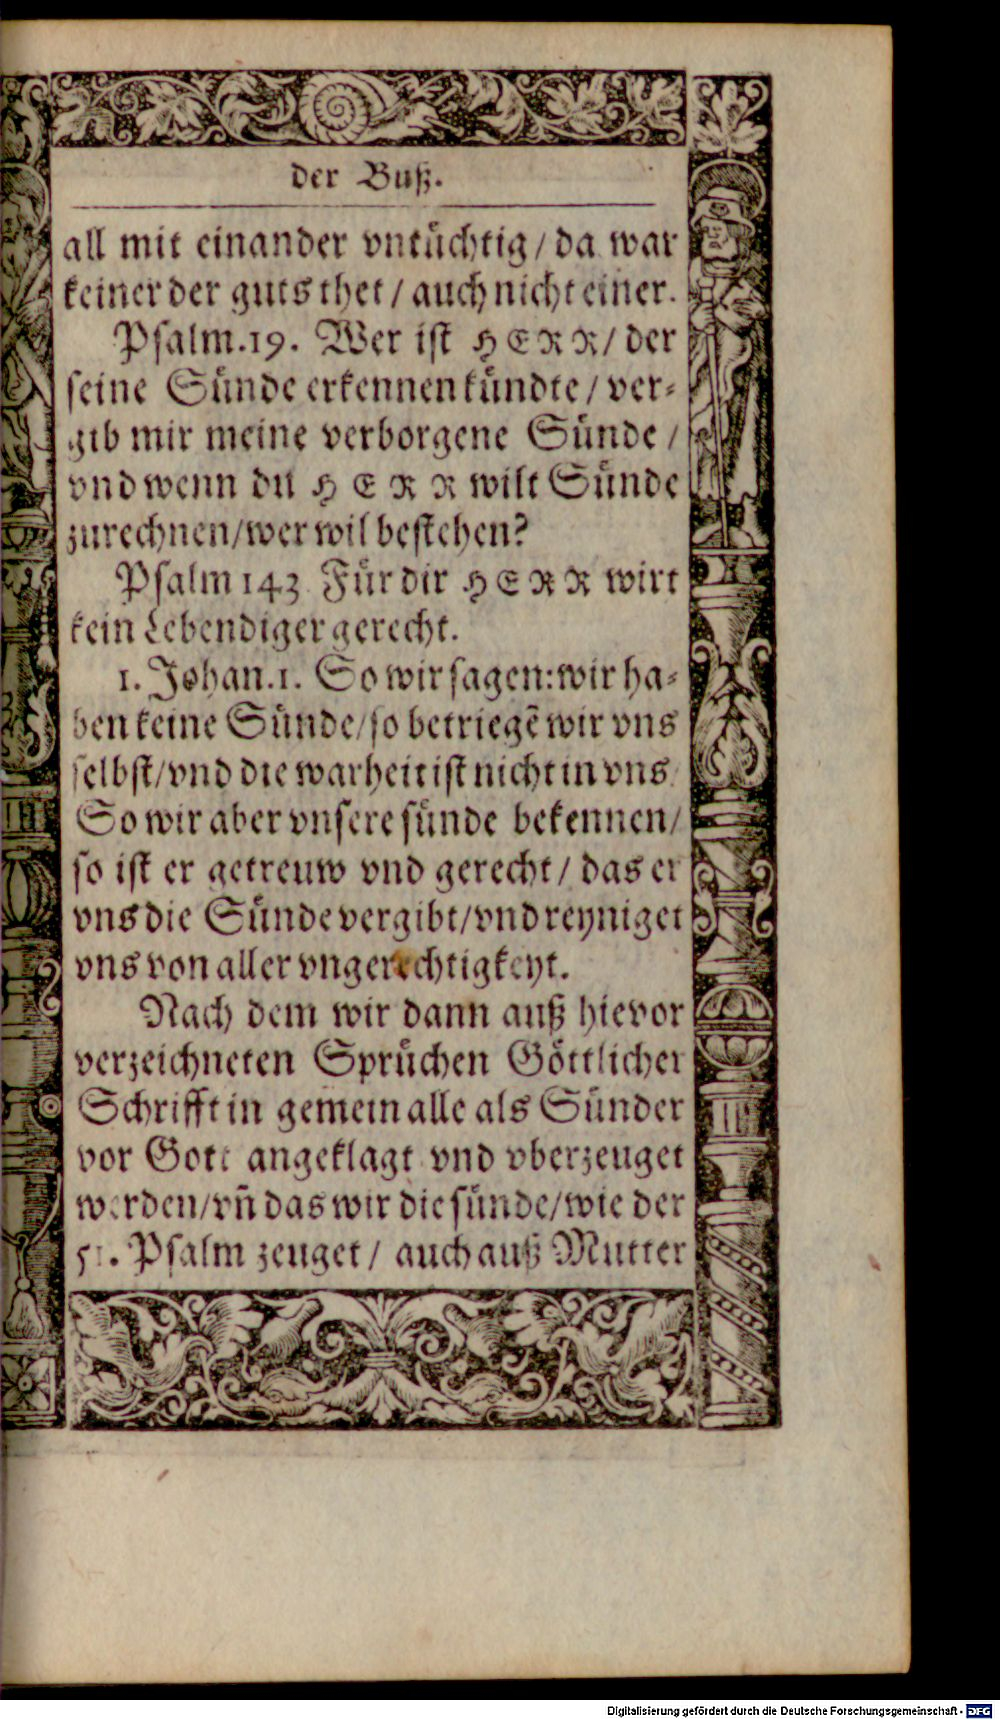 der Buß.
all mit einander vntüchtig / da war
keiner der guts thet / auch nicht einer.
Psalm.19. Wer ist HERR / der
seine Sünde erkennen kündte / ver-
gib mir meine verborgene Sünde /
vnd wenn du HERR wilt Sünde
zurechnen / wer wil bestehen?
Psalm 143 Für dir HERR wirt
kein Lebendiger gerecht.
1. Johan.1. So wir sagen: wir ha-
ben keine Sünde / so betriegē wir vns
selbst / vnd die warheit ist nicht in vns
So wir aber vnsere sünde bekennen /
so ist er getreuw vnd gerecht / das er
vns die Sünde vergibt / vnd reyniget
vns von aller vngerechtigkeyt.
Nach dem wir dann auß hievor
verzeichneten Sprüchen Göttlicher
Schrifft in gemein alle als Sünder
vor Gott angeklagt vnd vberzeuget
werden / vñ das wir die sünde / wie der
51. Psalm zeuget / auch auß Mutter
Digitalisierung gefördert durch die Deutsche Forschungsgemeinschaft - DFG